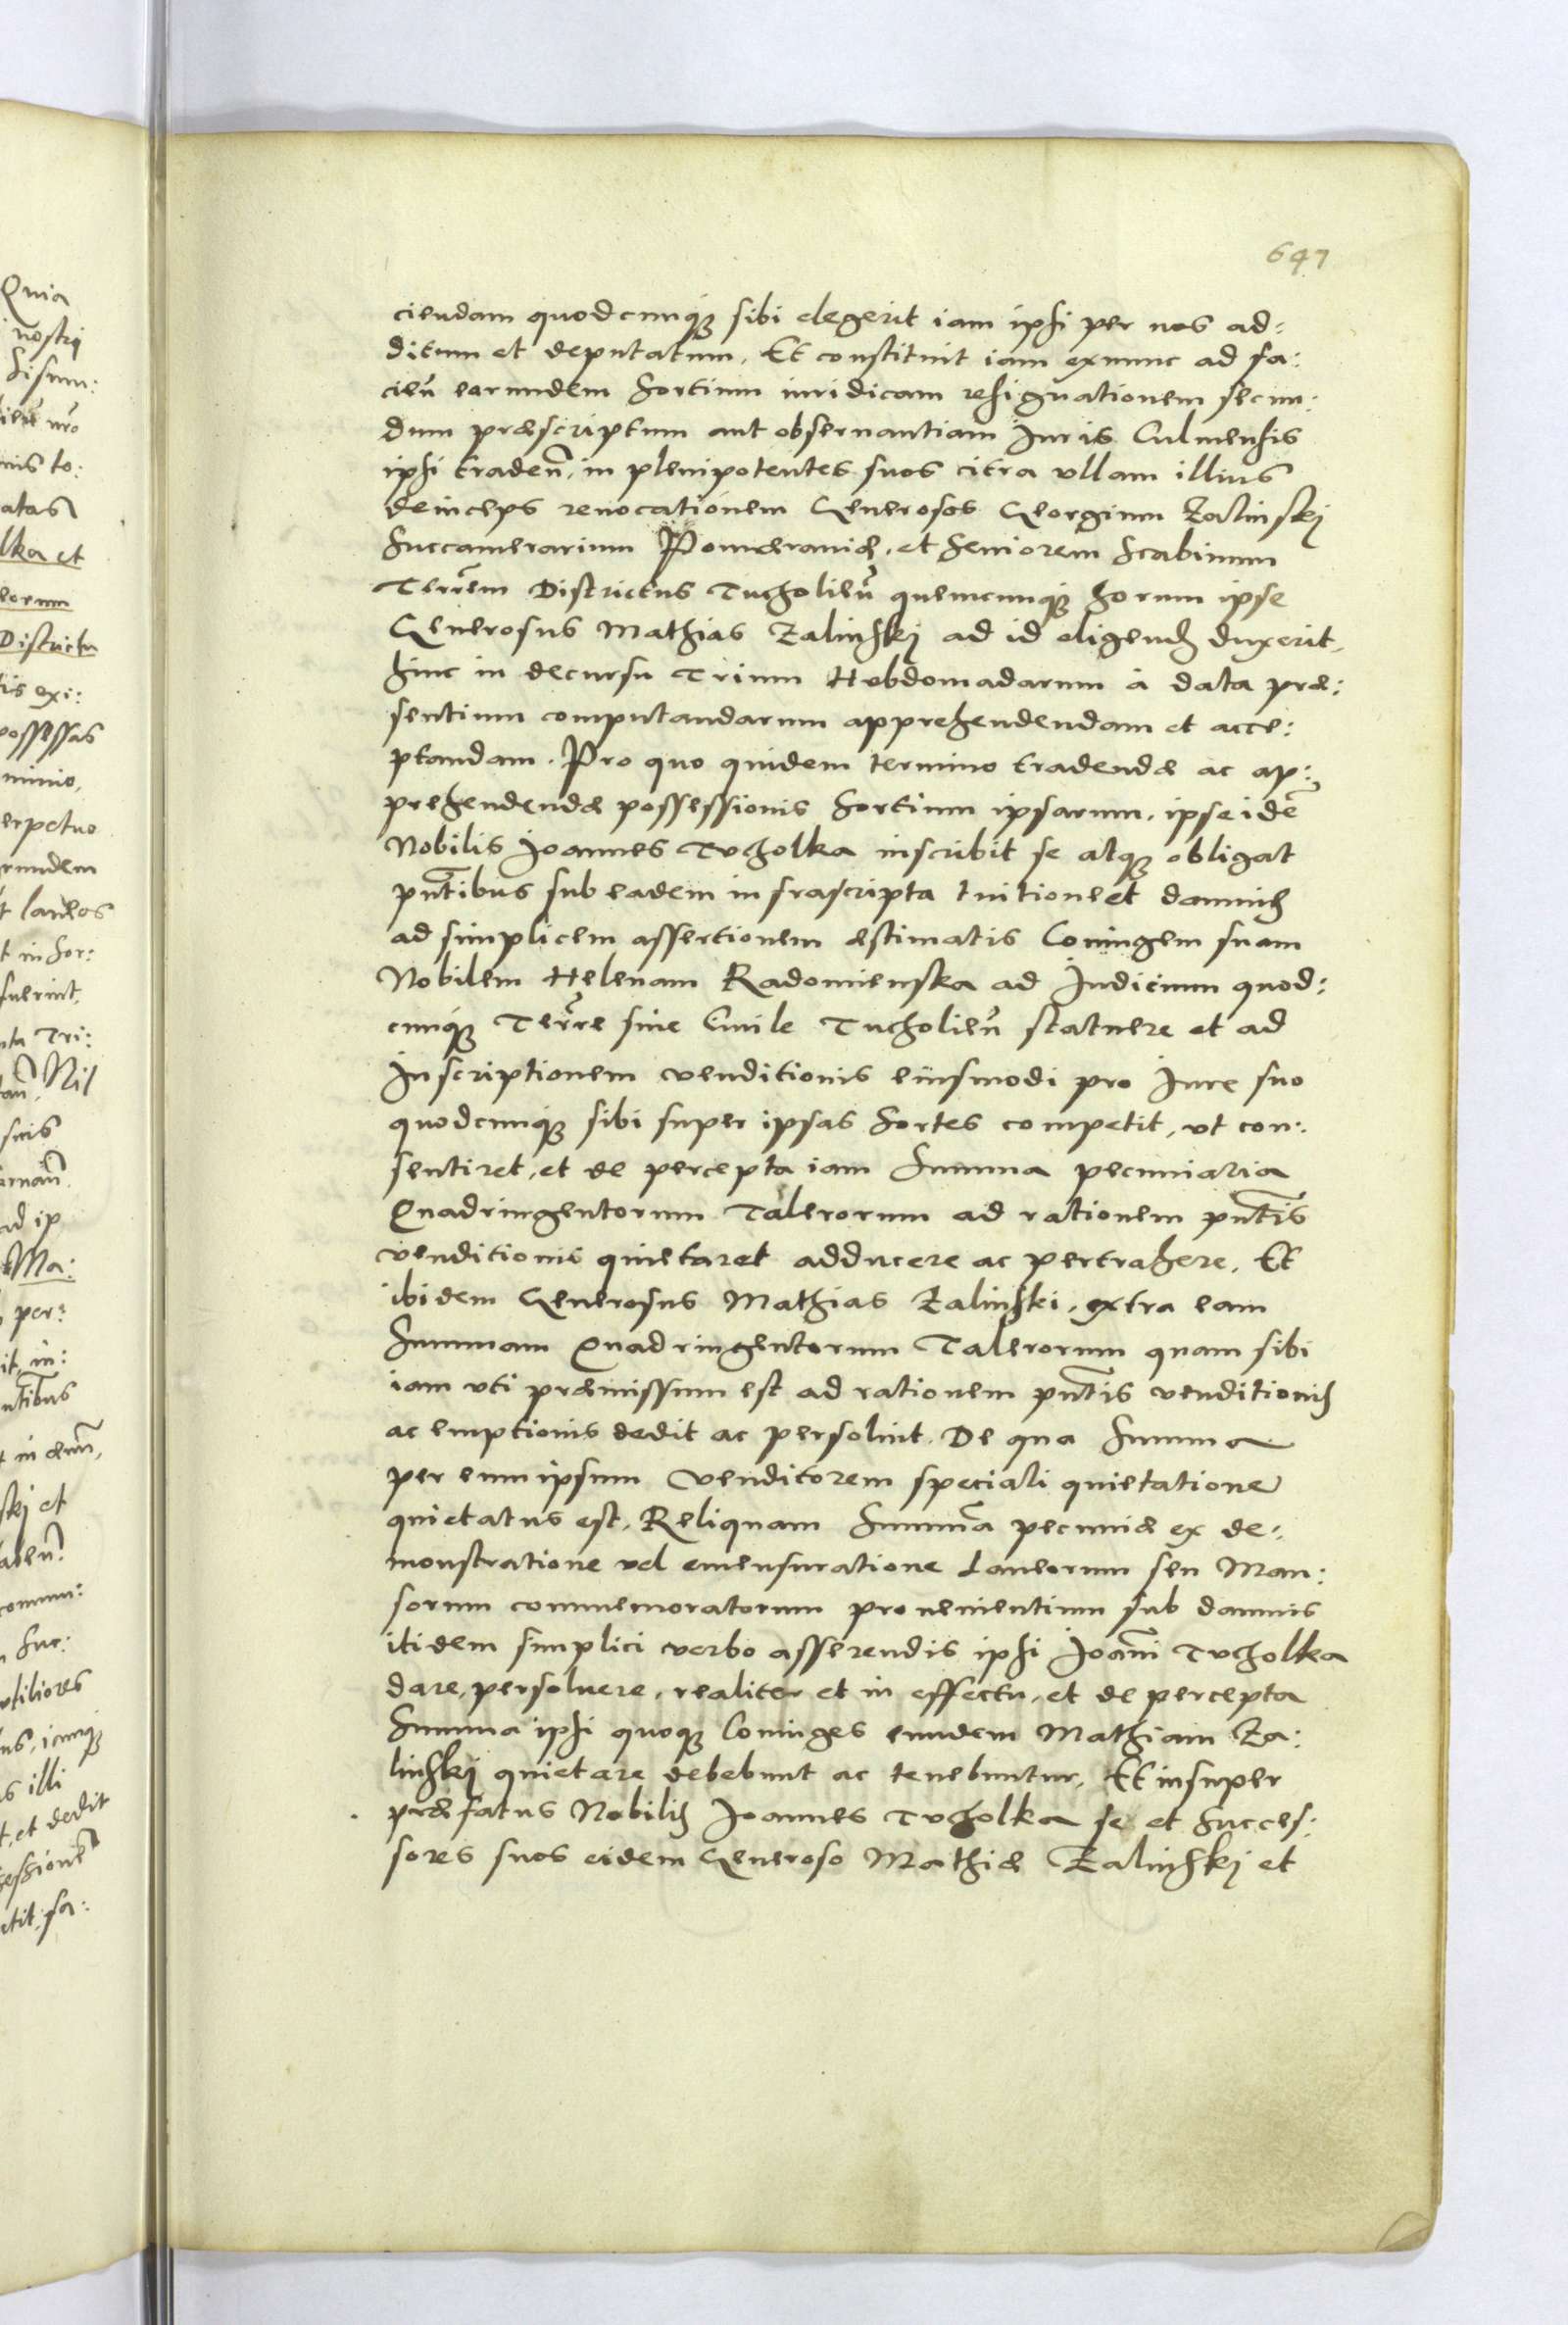 647
ciendam quodcunq₃ sibi elegerit iam ipsi per nos ad:
ditum et deputatum. Et constituit iam exnunc ad fa:
cien̄ earundem Sortium iuridicam resignationem secun:
dum præscriptum aut obseruantiam Iuris Culmensis
ipsi traden̄. in plenipotentes suos citra vllam illius
deinceps reuocationem Generosos Georgium Zalinskj
Succamerarium Pomæraniæ. et Seniorem Scabinum
Terrēm Districtus Tucholień quemcunq₃ horum ipse
Generosus Mathias Zalinskj ad id eligend duxerit,
hinc in decursu Trium Hebdomadarum à data præ:
sentium computandarum apprehendendam et acce:
ptandam. Pro quo quidem termino tradendæ ac ap:
prehendendæ possessionis Sortium ipsarum. ipse idē
Nobilis Joannes Tucholka inscribit se atq₃ obligat
pn̄tibus sub eadem infrascripta tuitione et damnis
ad simplicem assertionem æstimatis Coniugem suam
Nobilem Helenam Radomienska ad Iudicium quod:
cunq₃ Terr̄re siue Ciuile Tucholień statuere et ad
Inscriptionem venditionis eiusmodi pro Iure suo
quodcunq₃ sibi super ipsas Sortes competit, vt con:
sentiret, et de percepta iam Summa pecuniaria
Quadringentorum Talerorum ad rationem pn̄tis
venditionis quietaret adducere ac pertrahere. Et
ibidem Generosus Mathias Zalinski. extra eam
Summam Quadringentorum Talerorum quam sibi
iam vti præmissum est ad rationem pn̄tis venditionis
ac emptionis dedit ac persoluit. De qua Summa
per eum ipsum Venditorem speciali quietatione
quietatus est. Reliquam Summā pecuniæ ex de:
monstratione vel emensuratione Laneorum seu Man:
sorum commemoratorum prouenientium sub damnis
itidem simplici verbo asserendis ipsi Joāni Tucholka
dare, persoluere. realiter et in effectu. et de percepta
Summa ipsi quoq₃ Coniuges eundem Mathiam Za:
linskj quietare debebunt ac tenebuntur. Et insuper
præfatus Nobilis Joannes Tucholka se et Succes:
sores suos eidem Generoso Mathiæ Zalinskj et